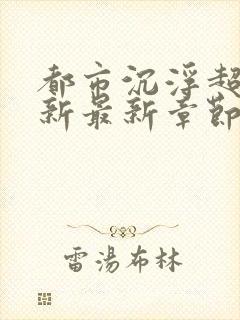 都市沉浮超
新最新章節
雷湯布林